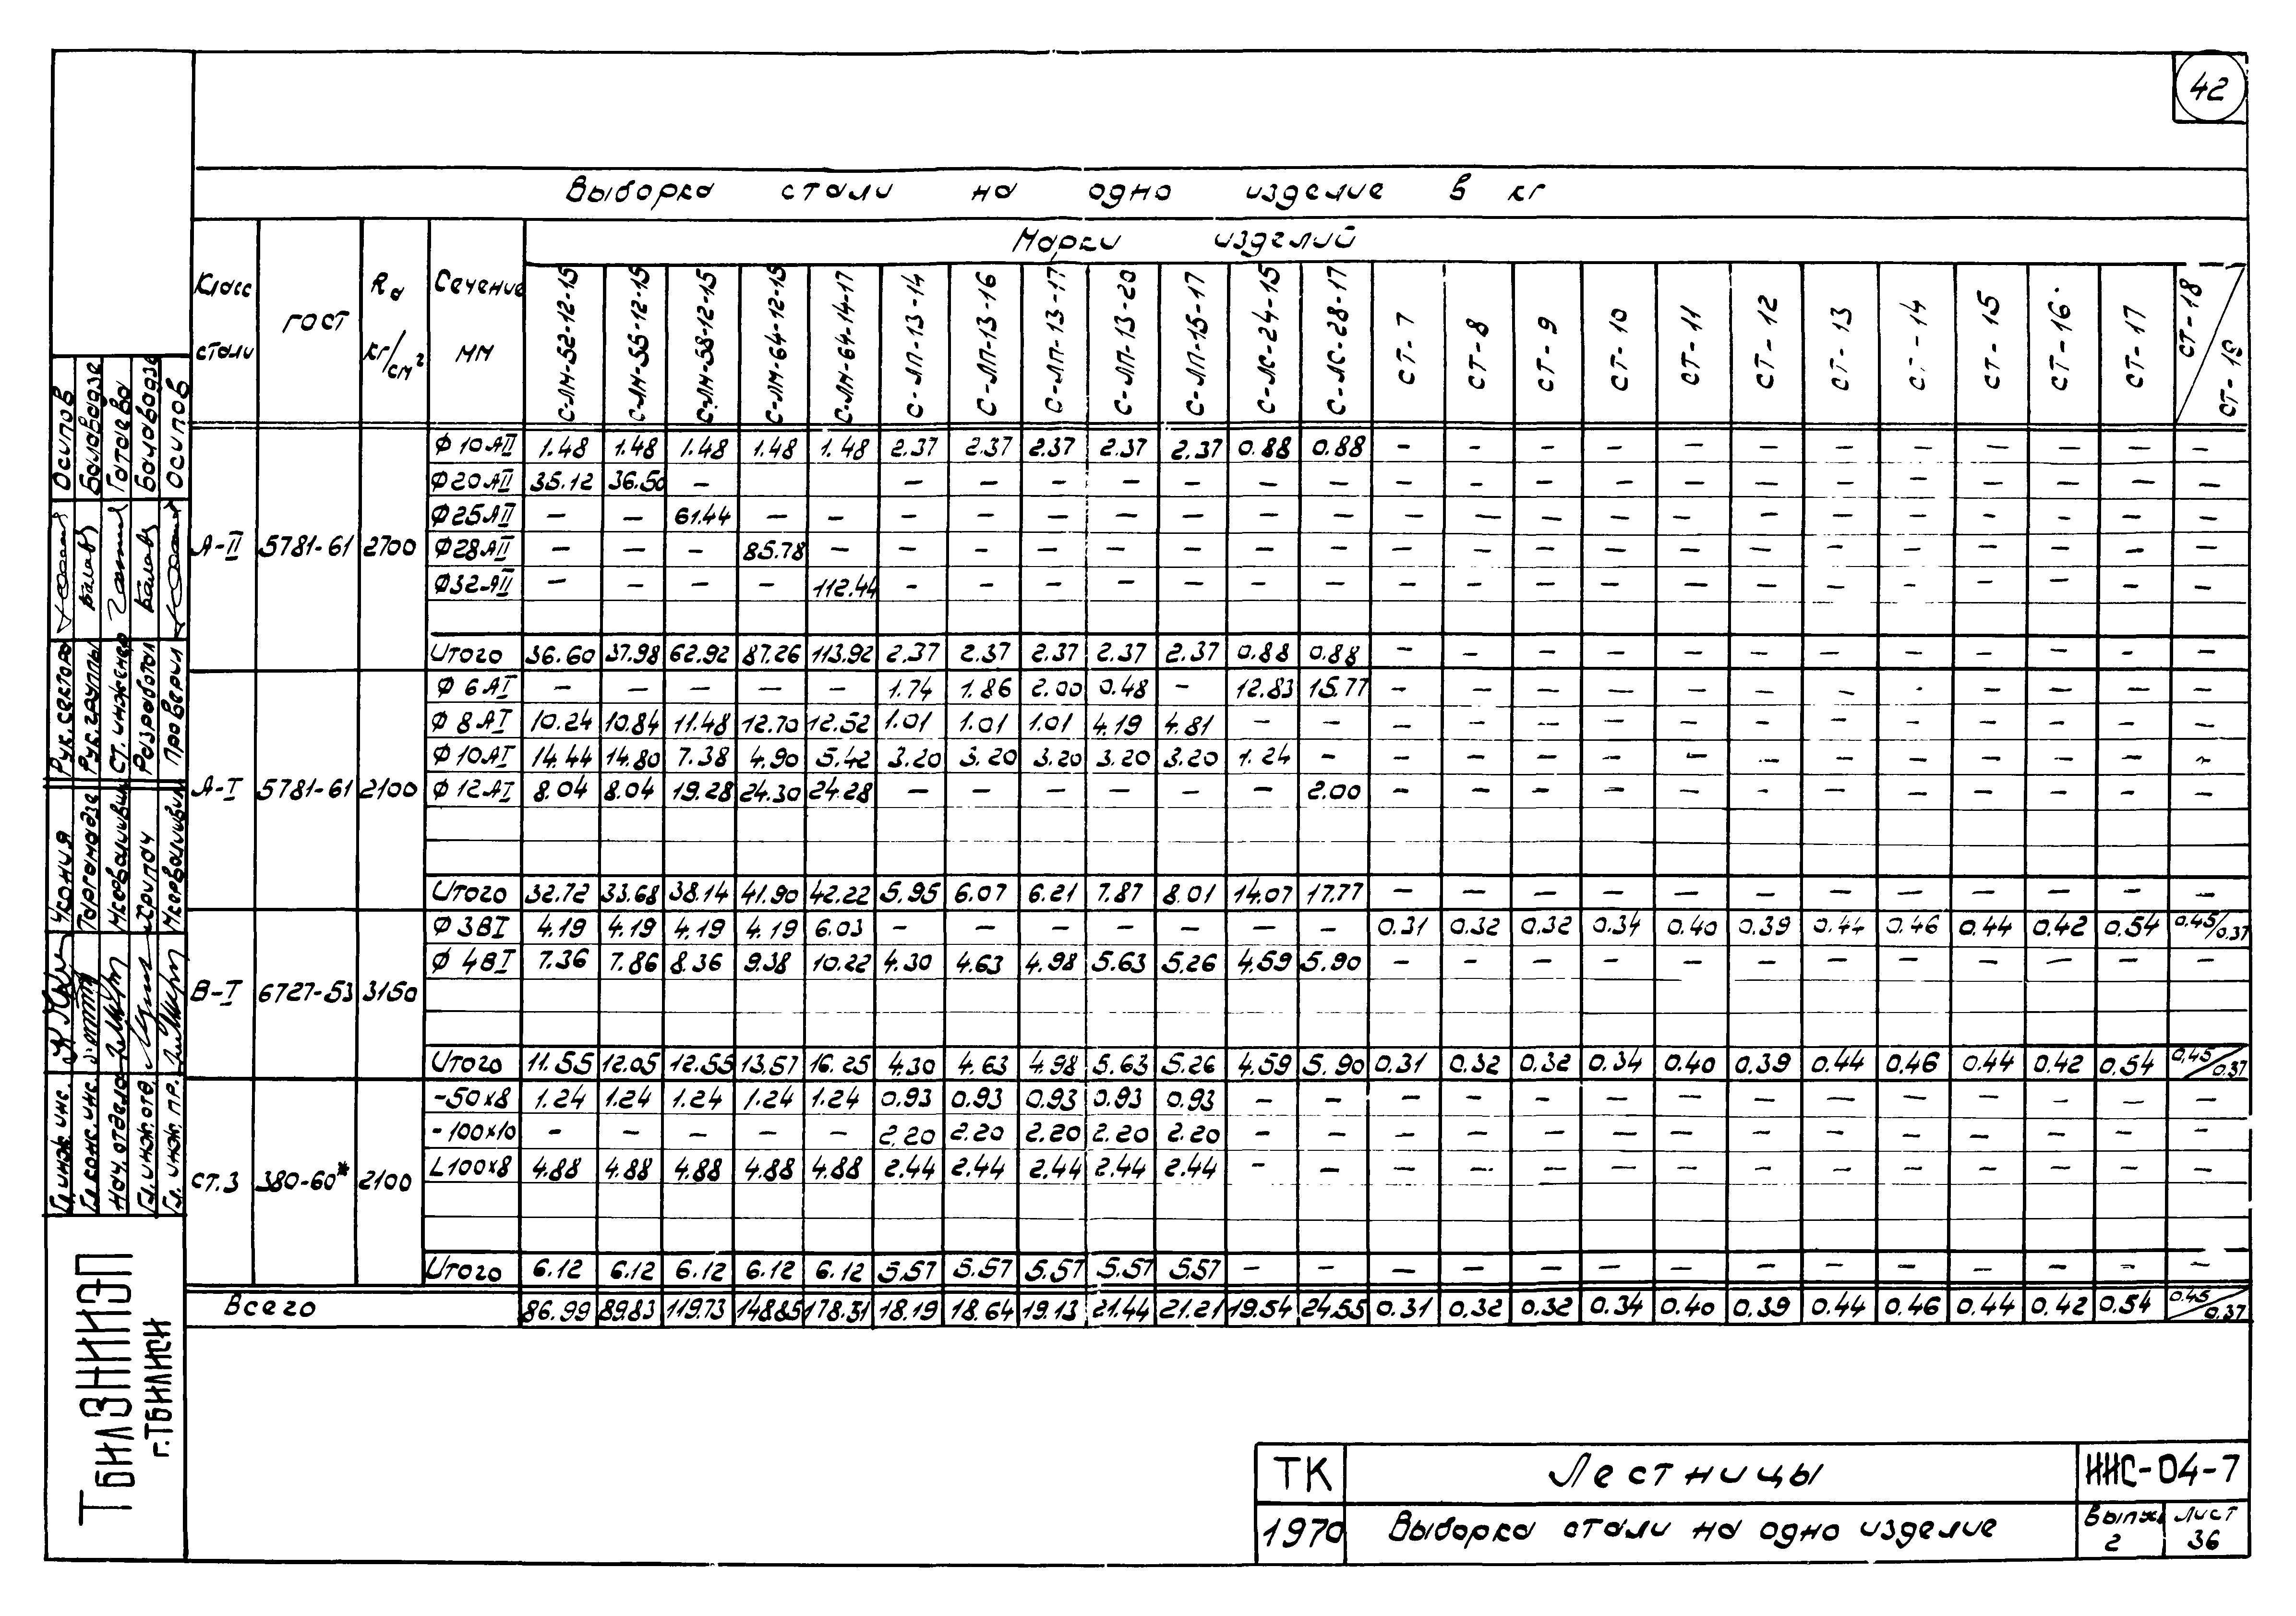 42
Выборка стали на одно изделие в кг
Класс стали | ГОСТ | Ra кг/см² | Сечение мм | Марки изделий
С-ЛМ-52-12-15 | С-ЛМ-55-12-15 | С-ЛМ-58-12-15 | С-ЛМ-64-12-15 | С-ЛМ-64-14-17 | С-ЛП-13-14 | С-ЛП-13-16 | С-ЛП-13-17 | С-ЛП-13-20 | С-ЛП-15-17 | С-ЛС-24-15 | С-ЛС-28-17 | СТ-7 | СТ-8 | СТ-9 | СТ-10 | СТ-11 | СТ-12 | СТ-13 | СТ-14 | СТ-15 | СТ-16 | СТ-17 | СТ-18 / СТ-19
А-II | 5781-61 | 2700
Ф10АII | 1.48 | 1.48 | 1.48 | 1.48 | 1.48 | 2.37 | 2.37 | 2.37 | 2.37 | 2.37 | 0.88 | 0.88 | – | – | – | – | – | – | – | – | – | – | – | –
Ф20АII | 35.12 | 36.50 | – | | | – | – | – | – | – | – | – | – | – | – | – | – | – | – | – | – | – | – | –
Ф25АII | – | – | 61.44 | – | – | – | – | – | – | – | – | – | – | – | – | – | – | – | – | – | – | – | – | –
Ф28АII | – | – | – | 85.78 | – | – | – | – | – | – | – | – | – | – | – | – | – | – | – | – | – | – | – | –
Ф32АII | – | – | – | – | 112.44 | – | – | – | – | – | – | – | – | – | – | – | – | – | – | – | – | – | – | –
Итого | 36.60 | 37.98 | 62.92 | 87.26 | 113.92 | 2.37 | 2.37 | 2.37 | 2.37 | 2.37 | 0.88 | 0.88 | – | – | – | – | – | – | – | – | – | – | – | –
А-I | 5781-61 | 2100
Ф 6АI | – | – | – | – | – | 1.74 | 1.86 | 2.00 | 0.48 | – | 12.83 | 15.77 | – | – | – | – | – | – | – | – | – | – | – | –
Ф 8АI | 10.24 | 10.84 | 11.48 | 12.70 | 12.52 | 1.01 | 1.01 | 1.01 | 4.19 | 4.81 | – | – | – | – | – | – | – | – | – | – | – | – | – | –
Ф 10АI | 14.44 | 14.80 | 7.38 | 4.90 | 5.42 | 3.20 | 3.20 | 3.20 | 3.20 | 3.20 | 1.24 | – | – | – | – | – | – | – | – | – | – | – | – | –
Ф 12АI | 8.04 | 8.04 | 19.28 | 24.30 | 24.28 | – | – | – | – | – | – | 2.00 | – | – | – | – | – | – | – | – | – | – | – | –
Итого | 32.72 | 33.68 | 38.14 | 41.90 | 42.22 | 5.95 | 6.07 | 6.21 | 7.87 | 8.01 | 14.07 | 17.77 | – | – | – | – | – | – | – | – | – | – | – | –
В-I | 6727-53 | 3150
Ф 3ВI | 4.19 | 4.19 | 4.19 | 4.19 | 6.03 | – | – | – | – | – | – | – | 0.31 | 0.32 | 0.32 | 0.34 | 0.40 | 0.39 | 0.44 | 0.46 | 0.44 | 0.42 | 0.54 | 0.45/0.37
Ф 4ВI | 7.36 | 7.86 | 8.36 | 9.38 | 10.22 | 4.30 | 4.63 | 4.98 | 5.63 | 5.26 | 4.59 | 5.90 | – | – | – | – | – | – | – | – | – | – | – | –
Итого | 11.55 | 12.05 | 12.55 | 13.57 | 16.25 | 4.30 | 4.63 | 4.98 | 5.63 | 5.26 | 4.59 | 5.90 | 0.31 | 0.32 | 0.32 | 0.34 | 0.40 | 0.39 | 0.44 | 0.46 | 0.44 | 0.42 | 0.54 | 0.45/0.37
СТ.3 | 380-60* | 2100
-50х8 | 1.24 | 1.24 | 1.24 | 1.24 | 1.24 | 0.93 | 0.93 | 0.93 | 0.93 | 0.93 | – | – | – | – | – | – | – | – | – | – | – | – | – | –
-100х10 | – | – | – | – | – | 2.20 | 2.20 | 2.20 | 2.20 | 2.20 | – | – | – | – | – | – | – | – | – | – | – | – | – | –
L100х8 | 4.88 | 4.88 | 4.88 | 4.88 | 4.88 | 2.44 | 2.44 | 2.44 | 2.44 | 2.44 | – | – | – | – | – | – | – | – | – | – | – | – | – | –
Итого | 6.12 | 6.12 | 6.12 | 6.12 | 6.12 | 5.57 | 5.57 | 5.57 | 5.57 | 5.57 | – | – | – | – | – | – | – | – | – | – | – | – | – | –
Всего | 86.99 | 89.83 | 119.73 | 148.85 | 178.31 | 18.19 | 18.64 | 19.13 | 21.44 | 21.21 | 19.54 | 24.55 | 0.31 | 0.32 | 0.32 | 0.34 | 0.40 | 0.39 | 0.44 | 0.46 | 0.44 | 0.42 | 0.54 | 0.45/0.37
Рук. сектора Осипов
Рук. группы Балавадзе
Ст. инженер Гатаева
Разработал Балавадзе
Проверил Осипов
Гл. инж. инс.
Гл. конс. инс.
Нач. отдела
Гл. инж. отд.
Гл. инж. пр.
ТбилЗНИИЭП
г. Тбилиси
ТК | Лестницы | ИИС-04-7
1970 | Выборка стали на одно изделие | Выпуск 2 | Лист 36